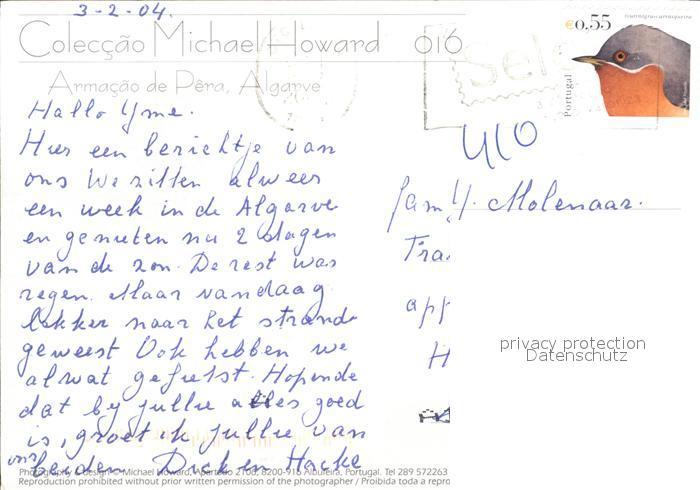 3-2-04.
Colecção Michael Howard 016
Armação de Pêra, Algarve
€0,55
Portugal
Sel
Hallo Yme.
Hier een berichtje van
ons We zitten alweer
een week in de Algarve
en genieten nu 2 dagen
van de zon. De rest was
regen. Maar vandaag
lekker naar het strand
geweest Ook hebben we
alwat gefietst. Hopende
dat by jullie alles goed
is, groet ik jullie van
ons beiden Dick en Hacke
410
fam Y. Molenaar.
Fra
app
H
privacy protection
Datenschutz
Photography & design © Michael Howard, Apartado 2108, 8200-916 Albufeira, Portugal. Tel 289 572263
Reproduction prohibited without prior written permission of the photographer / Proibida toda a repro